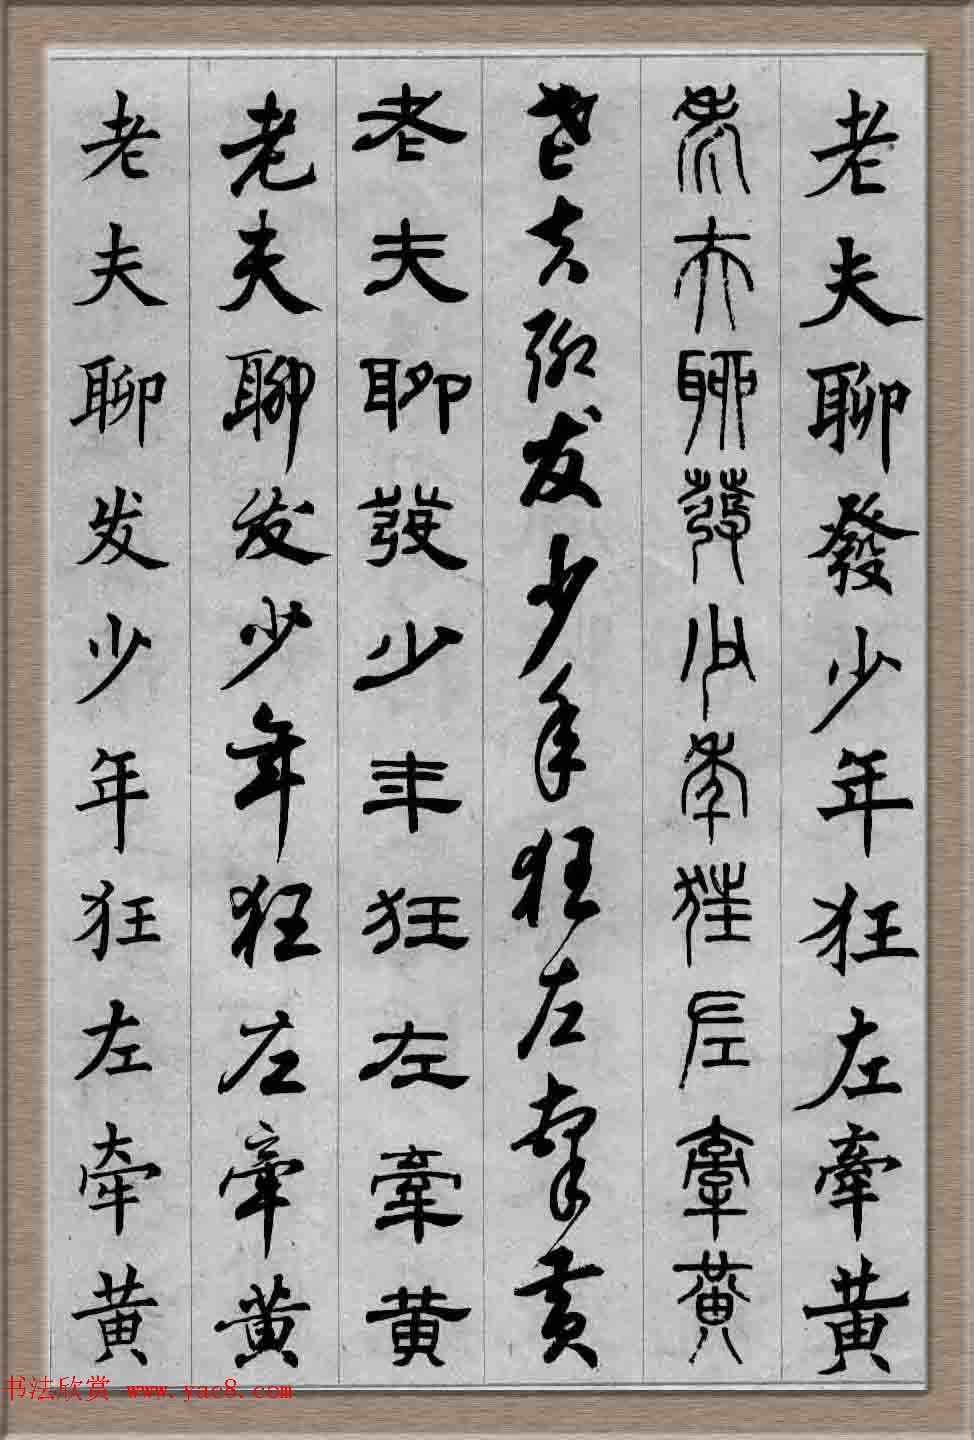 老夫聊發少年狂左牽黃
老夫聊發少年狂左牽黃
老夫聊发少年狂左牽黄
老夫聊發少年狂左牽黄
老夫聊发少年狂左牽黄
老夫聊发少年狂左牵黄
书法欣赏 www.yac8.com